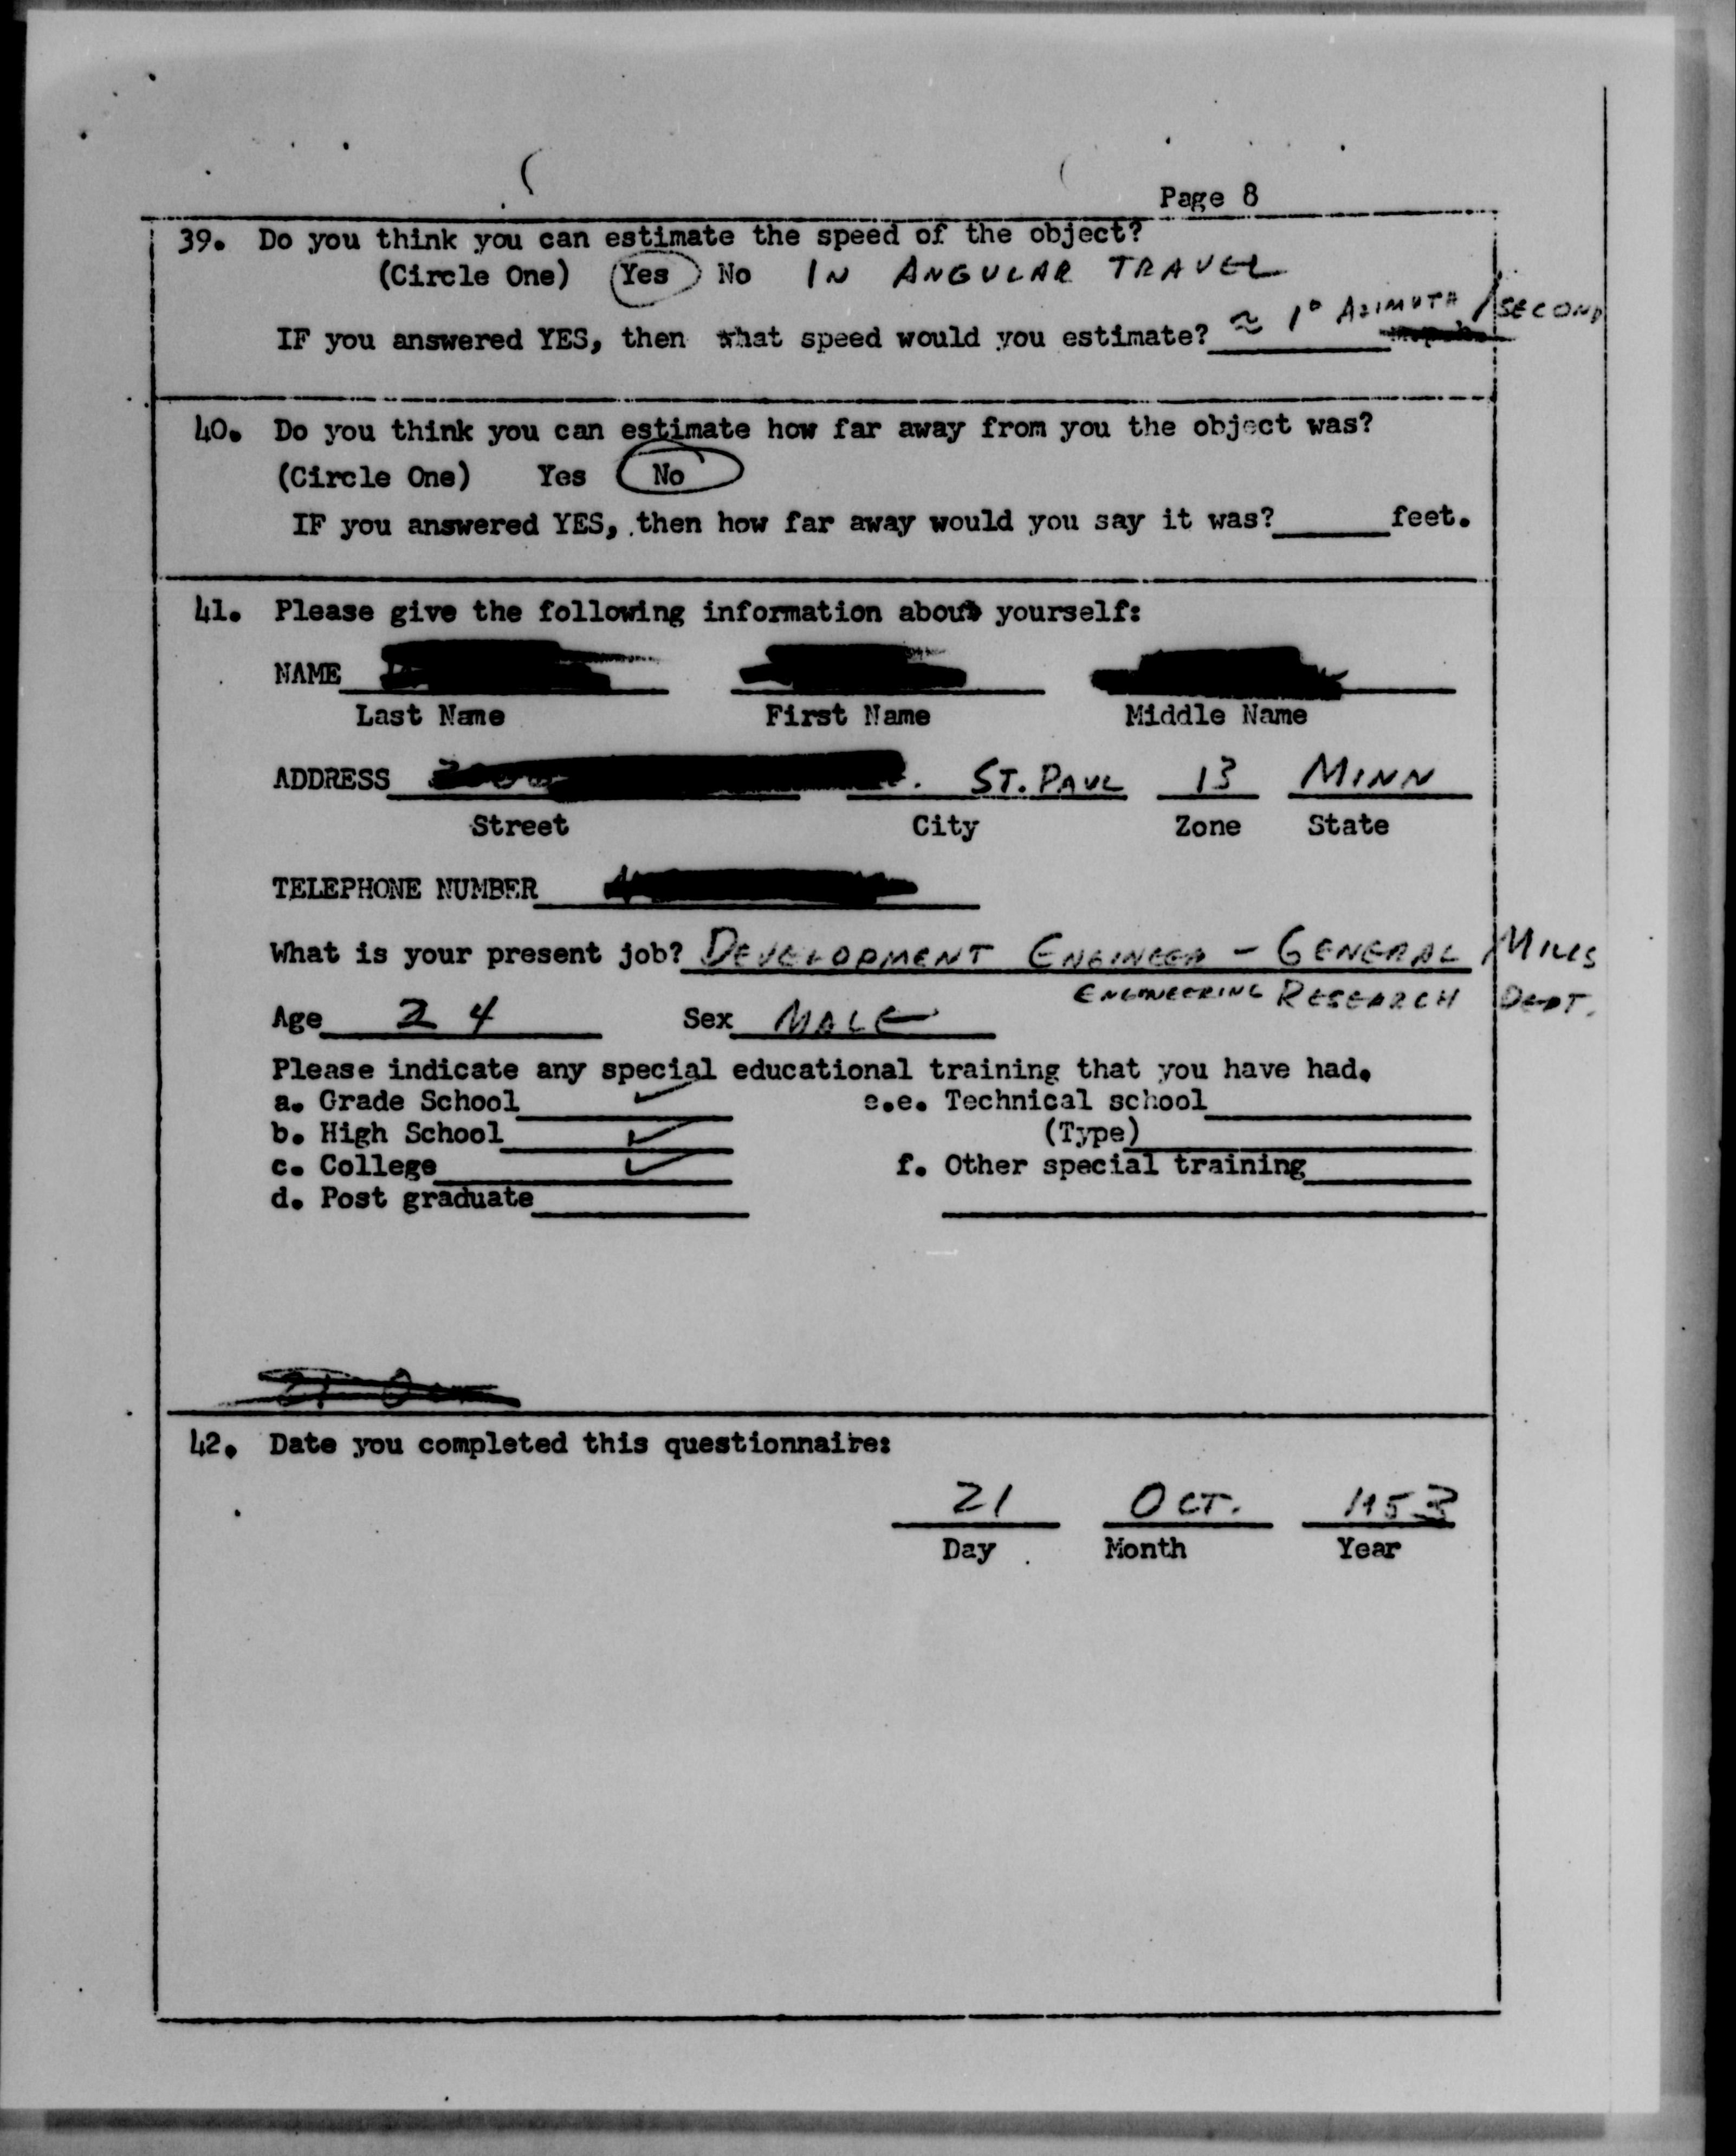 Page 8
39. Do you think you can estimate the speed of the object?
(Circle One) Yes No IN ANGULAR TRAVEL
IF you answered YES, then what speed would you estimate? ≈ 1° AZIMUTH / SECOND
40. Do you think you can estimate how far away from you the object was?
(Circle One) Yes No
IF you answered YES, then how far away would you say it was? feet.
41. Please give the following information about yourself:
NAME
Last Name First Name Middle Name
ADDRESS ST. PAUL 13 MINN
Street City Zone State
TELEPHONE NUMBER
What is your present job? DEVELOPMENT ENGINEER - GENERAL MILLS
ENGINEERING RESEARCH DEPT.
Age 24 Sex MALE
Please indicate any special educational training that you have had.
a. Grade School ✓ e.e. Technical school
b. High School ✓ (Type)
c. College ✓ f. Other special training
d. Post graduate
42. Date you completed this questionnaire:
21 OCT. 1953
Day Month Year